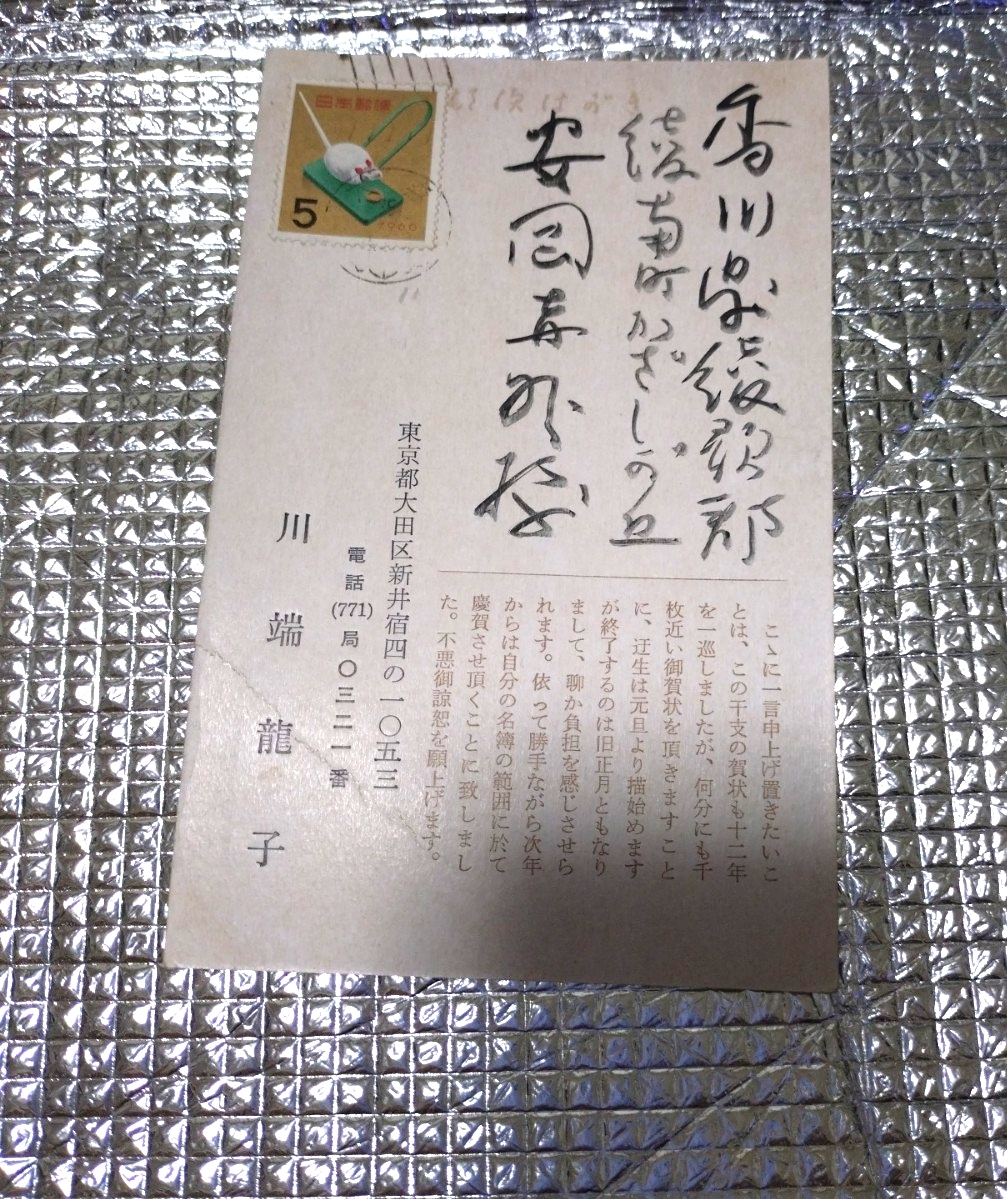 香川県綾歌郡
綾南町かざしが丘
安岡
様
日本郵便
5
1960
郵便はがき
こゝに一言申上げ置きたいこ
とは、この干支の賀状も十二年
を一巡しましたが、何分にも千
枚近い御賀状を頂きますこと
に、迂生は元旦より描始めます
が終了するのは旧正月ともなり
まして、聊か負担を感じさせら
れます。依って勝手ながら次年
からは自分の名簿の範囲に於て
慶賀させ頂くことに致しまし
た。不悪御諒恕を願上げます。
東京都大田区新井宿四の一〇五三
電話(771)局〇三二一番
川端龍子